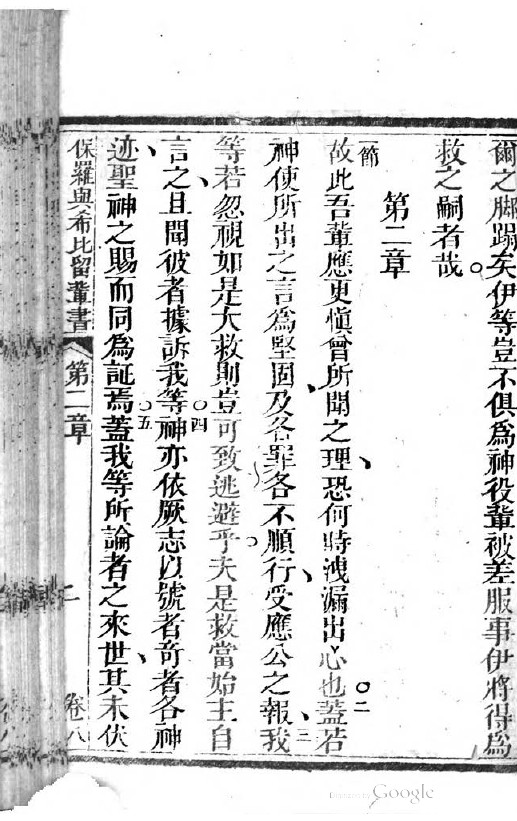 爾之脚蹋矣伊等豈不俱為神役輩被差服事伊將得為
救之嗣者哉
第二章
節
故此吾輩應更慎曾所聞之理恐何時洩漏出心也○二蓋若
神使所出之言為堅固及各罪各不順行受應公之報三我
等若忽視如是大救則豈可致逃避乎夫是救當始主自
言之且聞彼者據訴我等○四神亦依厥志以號者奇者各神
迹聖神之賜而同為証焉○五蓋我等所論者之來世其未伏
保羅與希比留輩書 第二章 二 卷八
Digitized by Google